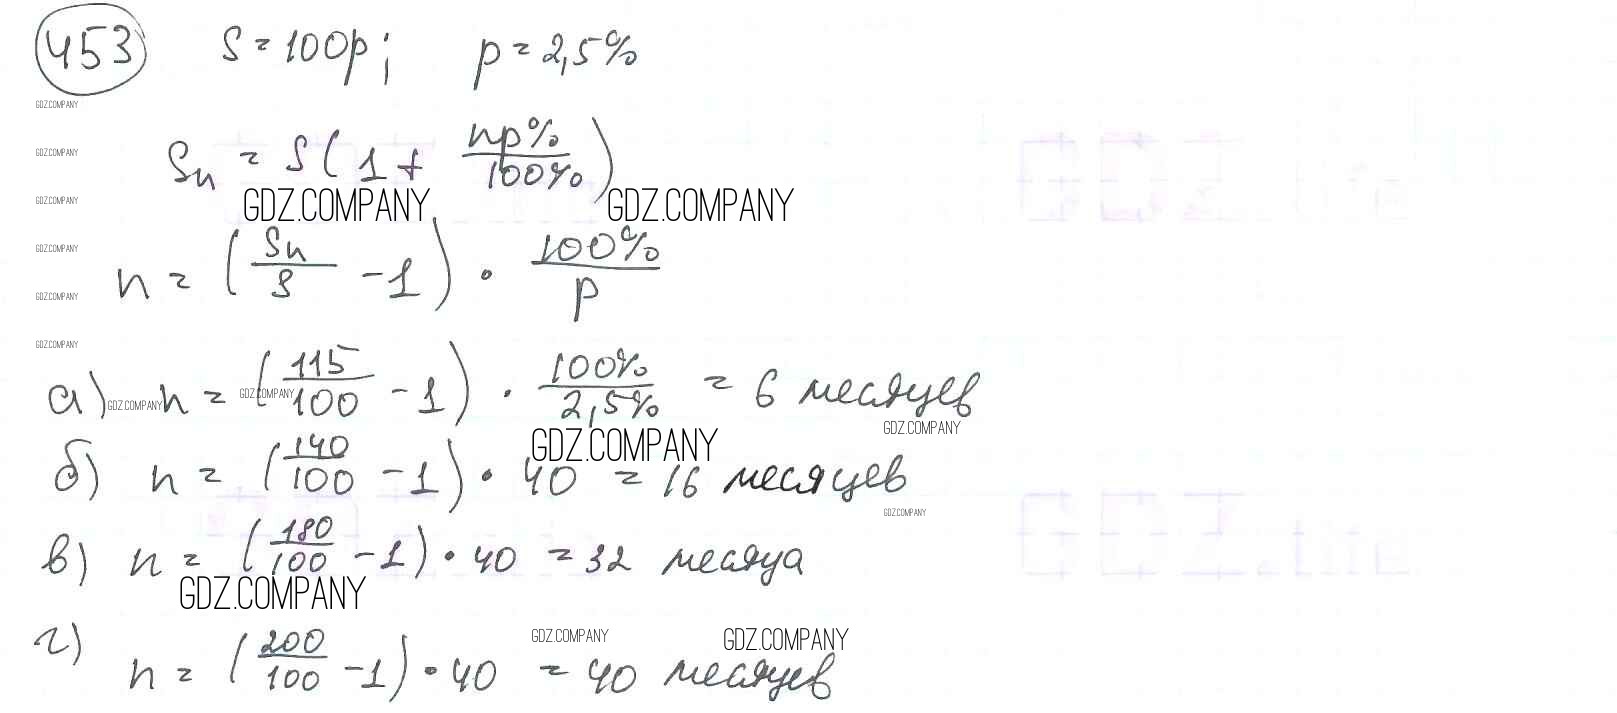 453 S = 100р; p = 2,5%
GDZ.COMPANY
GDZ.COMPANY
Sn = S(1 + np%/100%)
GDZ.COMPANY
GDZ.COMPANY GDZ.COMPANY
GDZ.COMPANY
n = (Sn/S - 1) · 100%/p
GDZ.COMPANY
GDZ.COMPANY
а) n = (115/100 - 1) · 100%/2,5% = 6 месяцев
GDZ.COMPANY GDZ.COMPANY
GDZ.COMPANY
GDZ.COMPANY
б) n = (140/100 - 1) · 40 = 16 месяцев
GDZ.COMPANY
в) n = (180/100 - 1) · 40 = 32 месяца
GDZ.COMPANY
GDZ.COMPANY GDZ.COMPANY
г) n = (200/100 - 1) · 40 = 40 месяцев